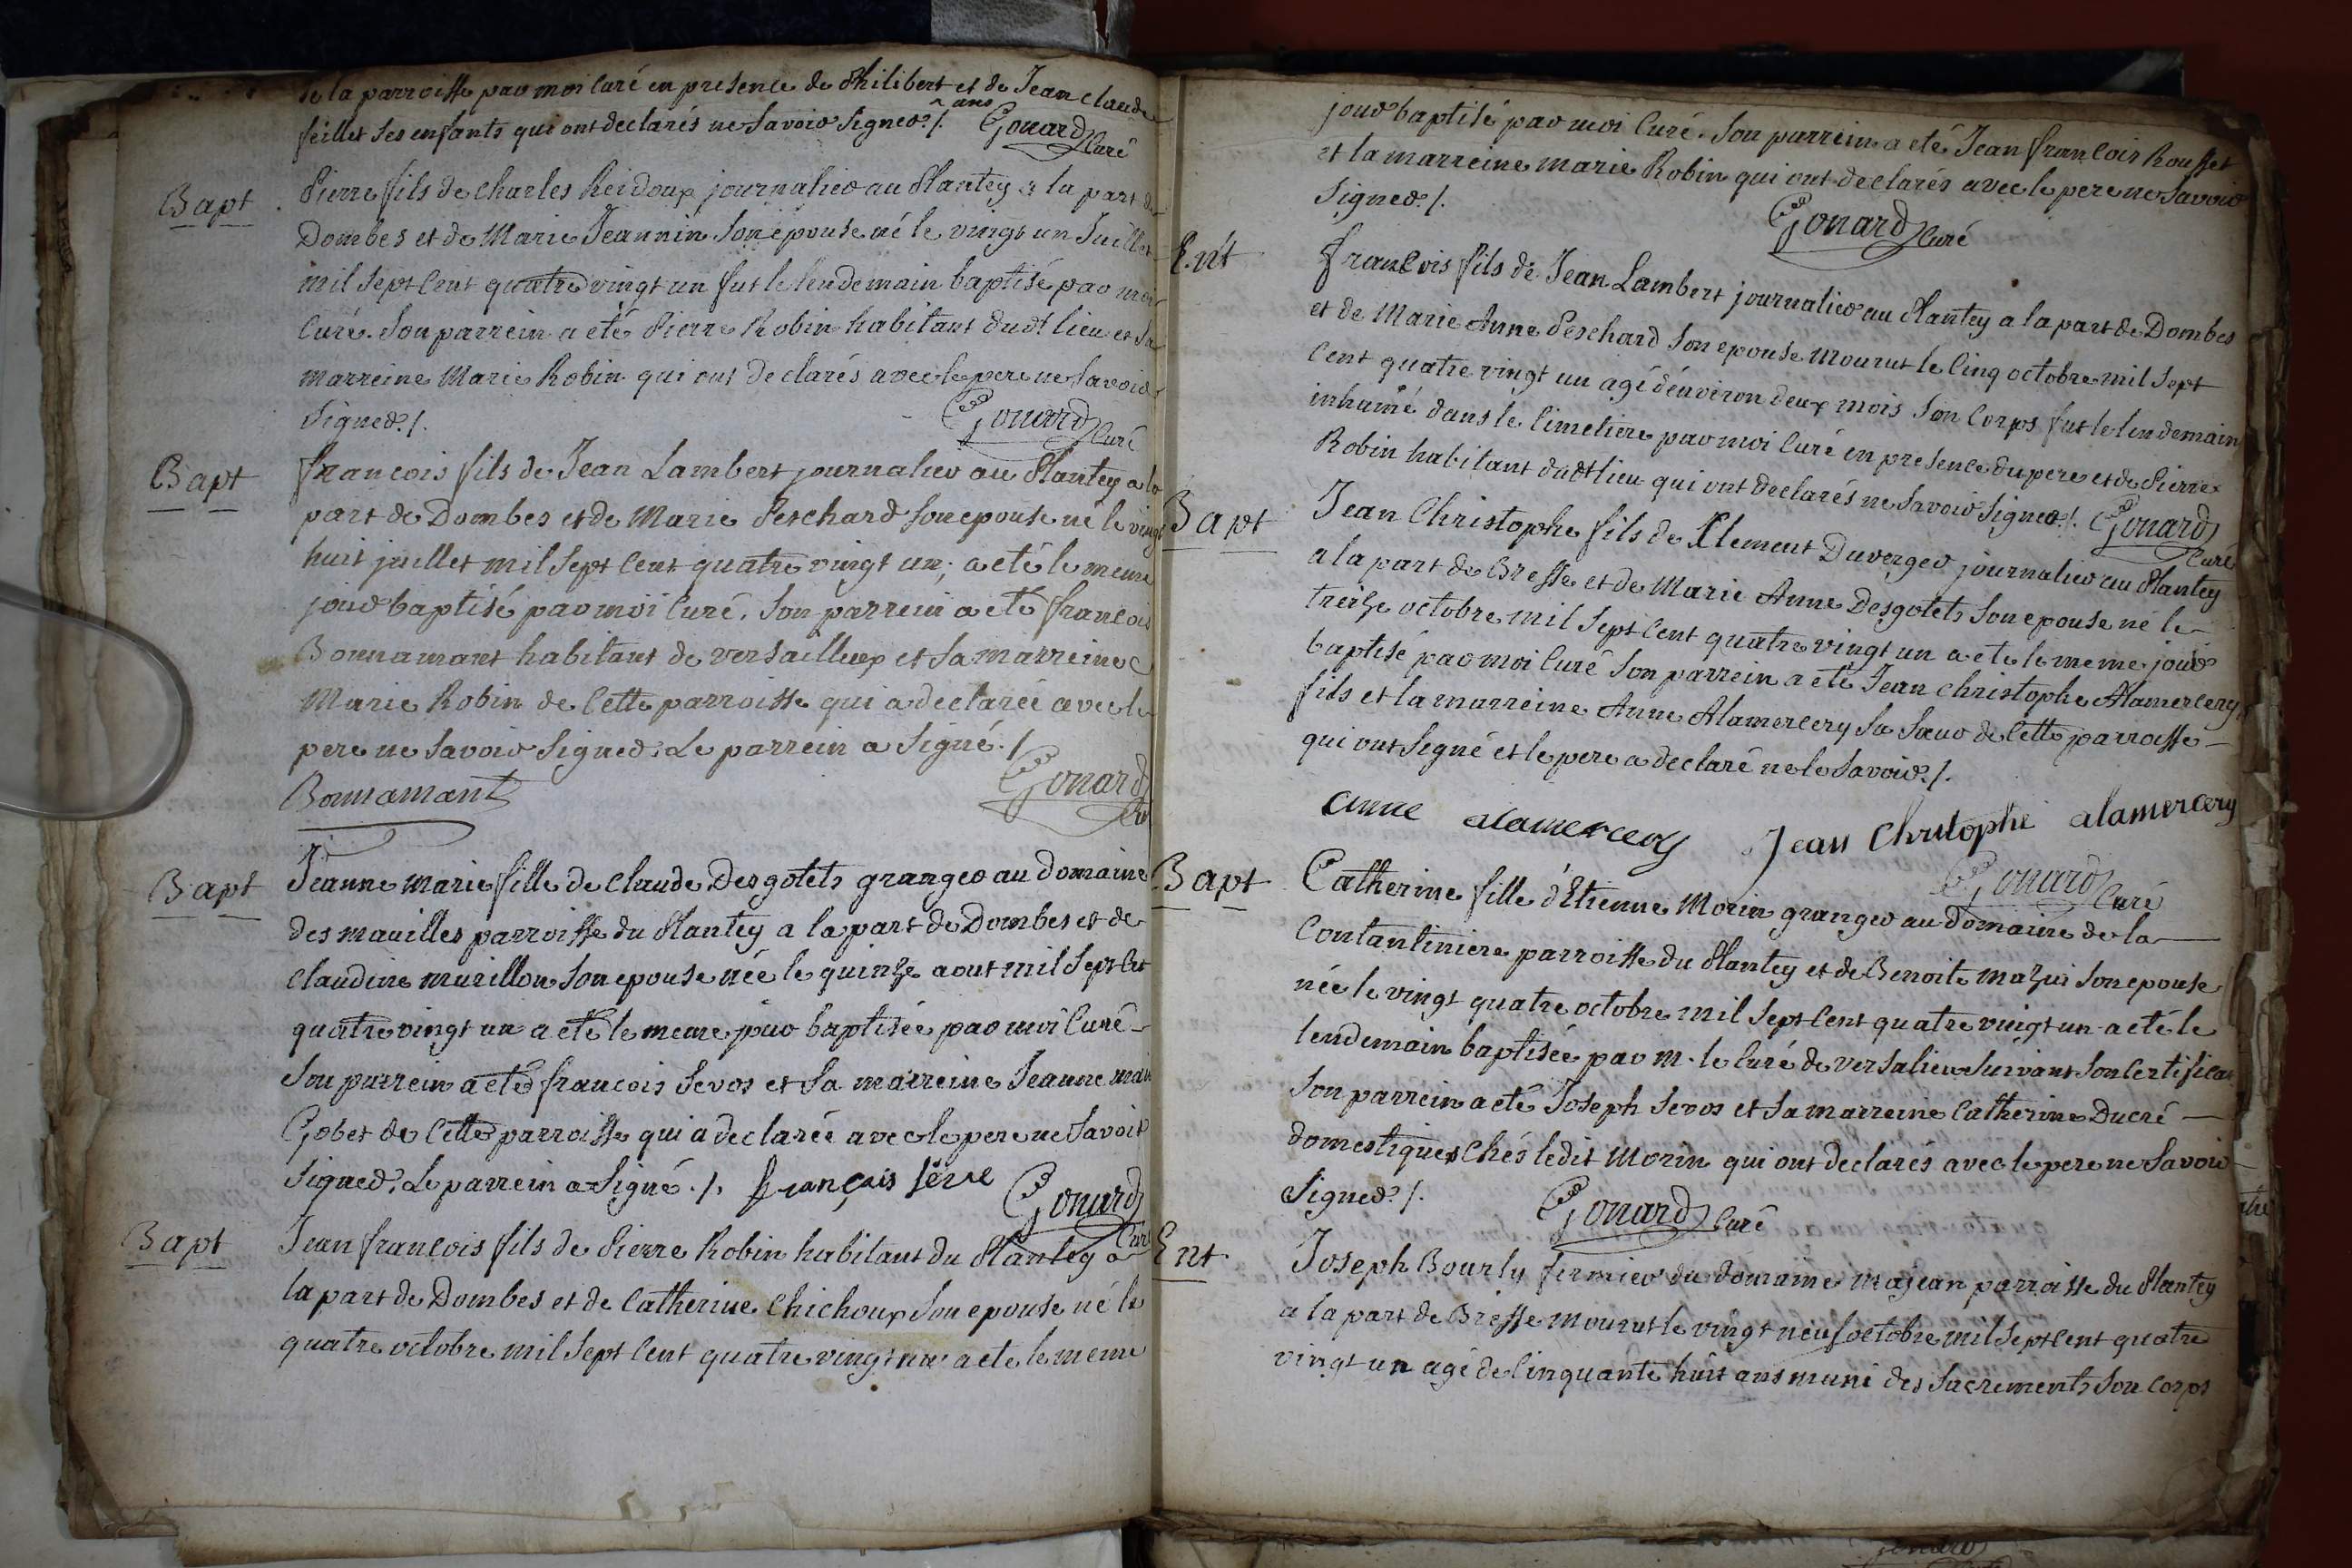 de la parroisse par moi Curé en presence de Philibert et de Jean claude
feillet ses enfants qui ont declarés ne savoir signer ./. Gonard Curé
Bapt
Pierre fils de Charles Reidoux journalier au Plantey a la part de
Dombes et de Marie Jeannin son épouse né le vingt un Juillet
mil sept cent quatre vingt un fut le lendemain baptisé par moi
Curé. Son parrein a eté Pierre Robin habitant dudt lieu et sa
marreine Marie Robin qui ont declarés avec le pere ne savoir
signer ./. Gonard Curé
Bapt
francois fils de Jean Lambert journalier au Plantey a la
part de Dombes et de Marie Perchard son epouse né le vingt
huit juillet mil sept cent quatre vingt un, a eté le meme
jour baptisé par moi Curé. Son parrein a eté francois
Bonnamant habitant de versailleux et sa marreine
Marie Robin de cette parroisse qui a declarée avec le
pere ne savoir signer. Le parrein a signé ./
Bonnamant Gonard
Bapt
Jeanne marie fille de claude Desgotets granger au domaine
des mauilles parroisse du Plantey a la part de Dombes et de
claudine murillon son epouse née le quinze aout mil sept cet
quatre vingt un a eté le meme jour baptisée par moi Curé
son parrein a eté francois Servos et sa marreine Jeanne marie
Gobet de cette parroisse qui a declarée avec le pere ne savoir
signer. Le parrein a signé ./. françois serve Gonard Curé
Bapt
Jean francois fils de Pierre Robin habitant du Plantey a
la part de Dombes et de Catherine Chichoux son epouse né le
quatre octobre mil sept cent quatre vingt un a eté le meme
jour baptisé par moi Curé. Son parrein a eté Jean francois Rousset
et la marreine marie Robin qui ont declarés avec le pere ne savoir
signer ./. Gonard Curé
Ent
francois fils de Jean Lambert journalier au Plantey a la part de Dombes
et de Marie Anne Perchard son epouse mourut le cinq octobre mil sept
cent quatre vingt un agé d'environ deux mois son corps fut le lendemain
inhumé dans le cimetiere par moi Curé en presence du pere et de Pierre
Robin habitant dudt lieu qui ont declarés ne savoir signer ./. Gonard Curé
Bapt
Jean Christophe fils de Clement Duverger journalier au Plantey
a la part de Bresse et de Marie Anne Desgotets son epouse né le
treize octobre mil sept cent quatre vingt un a eté le meme jour
baptisé par moi Curé son parrein a eté Jean christophe Alamercery
fils et la marreine Anne Alamercery sa sœur de cette parroisse
qui ont signé et le pere a declaré ne le savoir ./.
anne alamercery Jean Christophe alamercery
Gonard Curé
Bapt
Catherine fille d'Etienne Morin granger au domaine de la
Contantiniere parroisse du Plantey et de Benoite mazui son epouse
née le vingt quatre octobre mil sept cent quatre vingt un a eté le
lendemain baptisée par M. le Curé de versalieu suivant son certificat
son parrein a eté Joseph Servos et sa marreine Catherine Ducré
domestiques chés ledit Morin qui ont declarés avec le pere ne savoir
signer ./. Gonard Curé
Ent
Joseph Bourly fermier du domaine majean parroisse du Plantey
a la part de Bresse mourut le vingt neuf octobre mil sept cent quatre
vingt un agé de cinquante huit ans muni des sacrements son corps